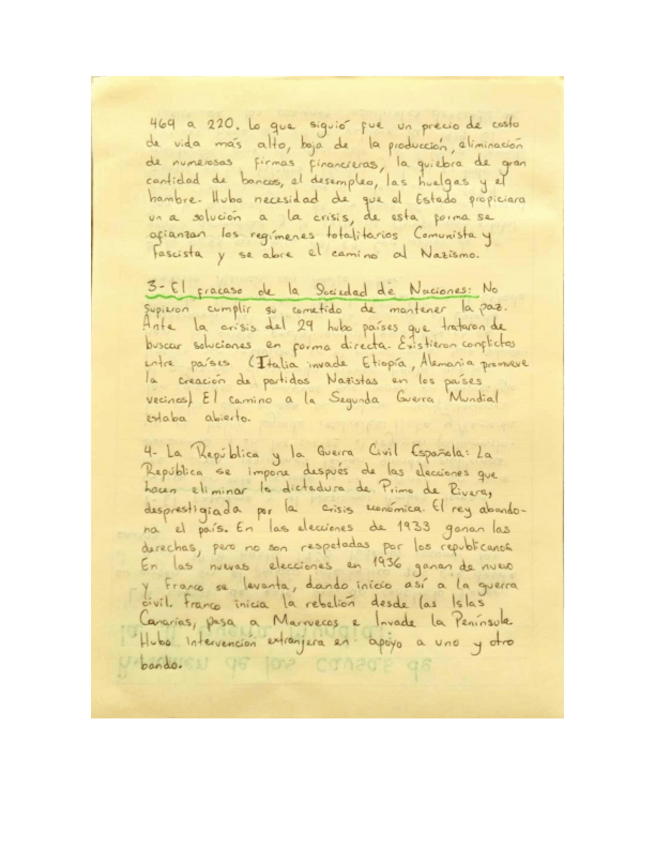 469 a 220. Lo que siguió fue un precio de costo
de vida más alto, baja de la producción, eliminación
de numerosas firmas financieras, la quiebra de gran
cantidad de bancos, el desempleo, las huelgas y el
hambre. Hubo necesidad de que el Estado propiciara
un a solución a la crisis, de esta forma se
afianzan los regímenes totalitarios Comunista y
fascista y se abre el camino al Nazismo.
3- El fracaso de la Sociedad de Naciones: No
supieron cumplir su cometido de mantener la paz.
Ante la crisis del 29 hubo países que trataron de
buscar soluciones en forma directa. Existieron conflictos
entre países (Italia invade Etiopía, Alemania promueve
la creación de partidos Nazistas en los países
vecinos) El camino a la Segunda Guerra Mundial
estaba abierto.
4- La República y la Guerra Civil Española: La
República se impone después de las elecciones que
hacen eliminar la dictadura de Primo de Rivera,
desprestigiada por la crisis económica. El rey abando-
na el país. En las elecciones de 1933 ganan las
derechas, pero no son respetadas por los republicanos.
En las nuevas elecciones en 1936 ganan de nuevo
y Franco se levanta, dando inicio así a la guerra
civil. Franco inicia la rebelión desde las Islas
Canarias, pasa a Marruecos e Invade la Península.
Hubo intervención extranjera en apoyo a uno y otro
bando.